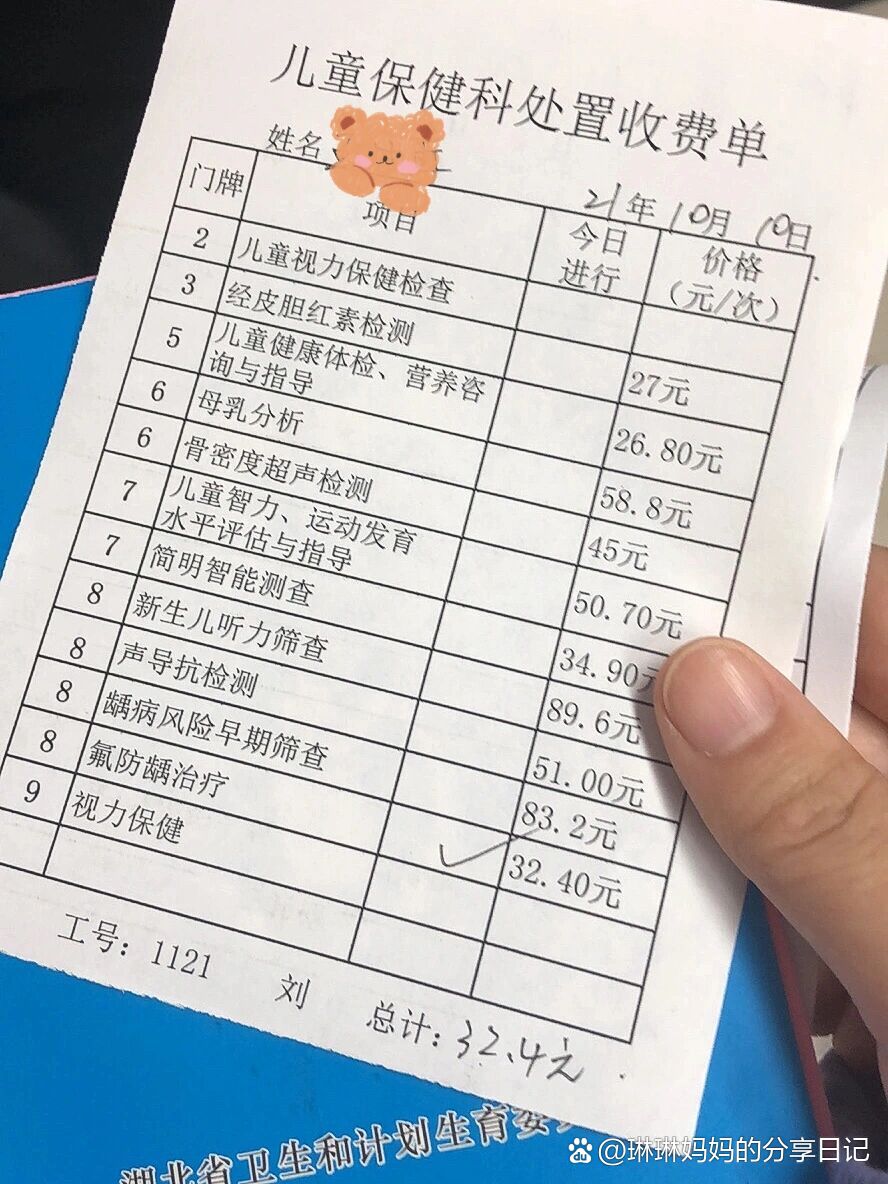 儿童保健科处置收费单
姓名
21年10月10日
门牌 项目 今日进行 价格（元/次）
2 儿童视力保健检查
3 经皮胆红素检测 27元
5 儿童健康体检、营养咨询与指导 26.80元
6 母乳分析 58.8元
6 骨密度超声检测 45元
7 儿童智力、运动发育水平评估与指导 50.70元
7 简明智能测查 34.90元
8 新生儿听力筛查 89.6元
8 声导抗检测 51.00元
8 龋病风险早期筛查 83.2元
8 氟防龋治疗 ✓ 32.40元
9 视力保健
工号：1121 刘 总计：32.4元
湖北省卫生和计划生育委
Baidu @琳琳妈妈的分享日记